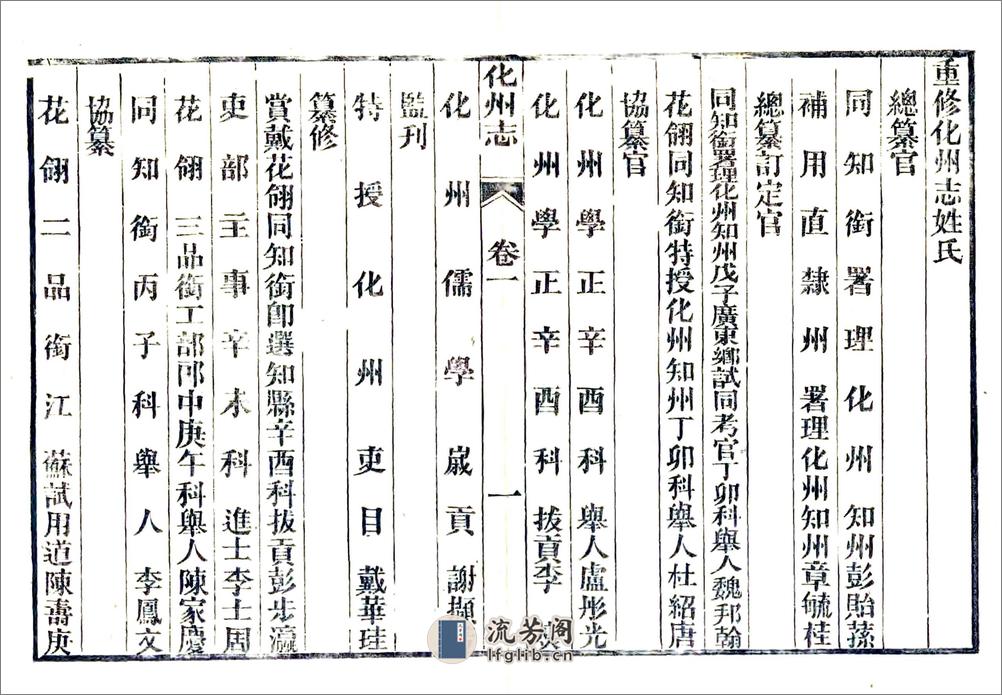 重修化州志姓氏
總纂官
同知銜署理化州知州彭貽蓀
補用直隸州署理化州知州章毓桂
總纂訂定官
同知銜署理化州知州戊子廣東鄉試同考官丁卯科舉人魏邦翰
花翎同知銜特授化州知州丁卯科舉人杜紹唐
協纂官
化州學正辛酉科舉人盧彤光
化州學正辛酉科拔貢李
化州志 卷一 一
化州儒學歲貢謝擷
監刊
特授化州吏目戴華珪
纂修
賞戴花翎同知銜卽選知縣辛酉科拔貢彭步瀛
吏部主事辛未科進士李士周
花翎三品銜工部郎中庚午科舉人陳家慶
同知銜丙子科舉人李鳳文
協纂
花翎二品銜江蘇試用道陳壽庚
流芳阁
lfglib.cn